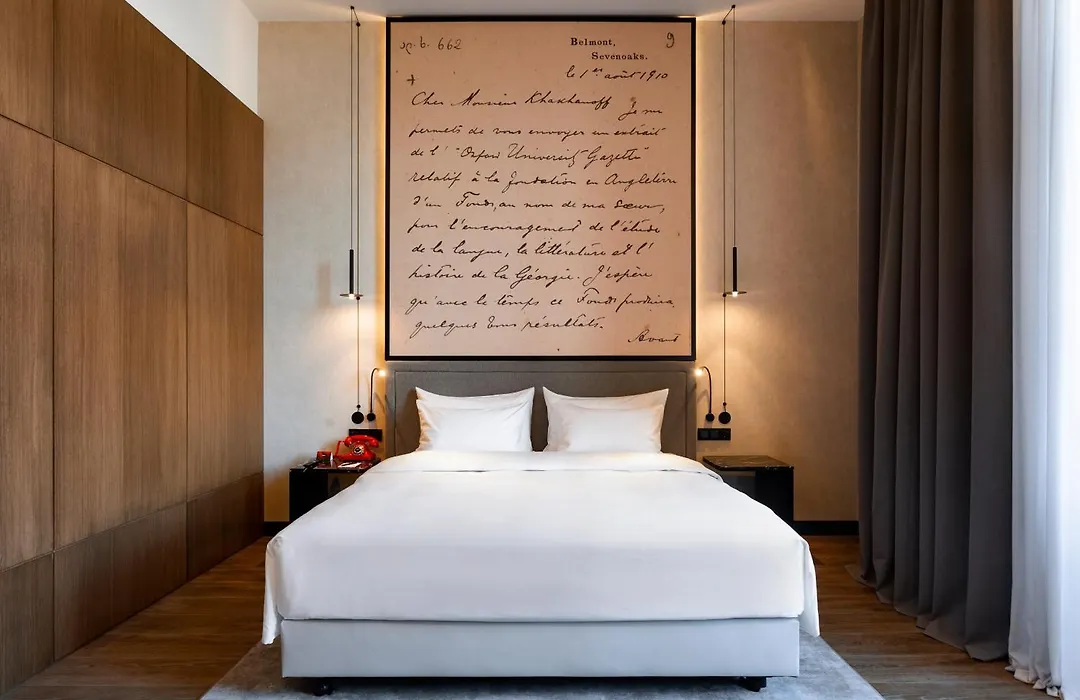 ფ. ნ. 662
Belmont, 9
Sevenoaks.
le 1er août 1910
+
Cher Monsieur Khakhanoff
Je me
permets de vous envoyer un extrait
de l' "Oxford University Gazette"
relatif à la fondation en Angleterre
d'un Fonds, au nom de ma sœur,
pour l'encouragement de l'étude
de la langue, la littérature et l'
histoire de la Géorgie. J'espère
qu'avec le temps ce Fonds produira
quelques bons résultats.
Avant